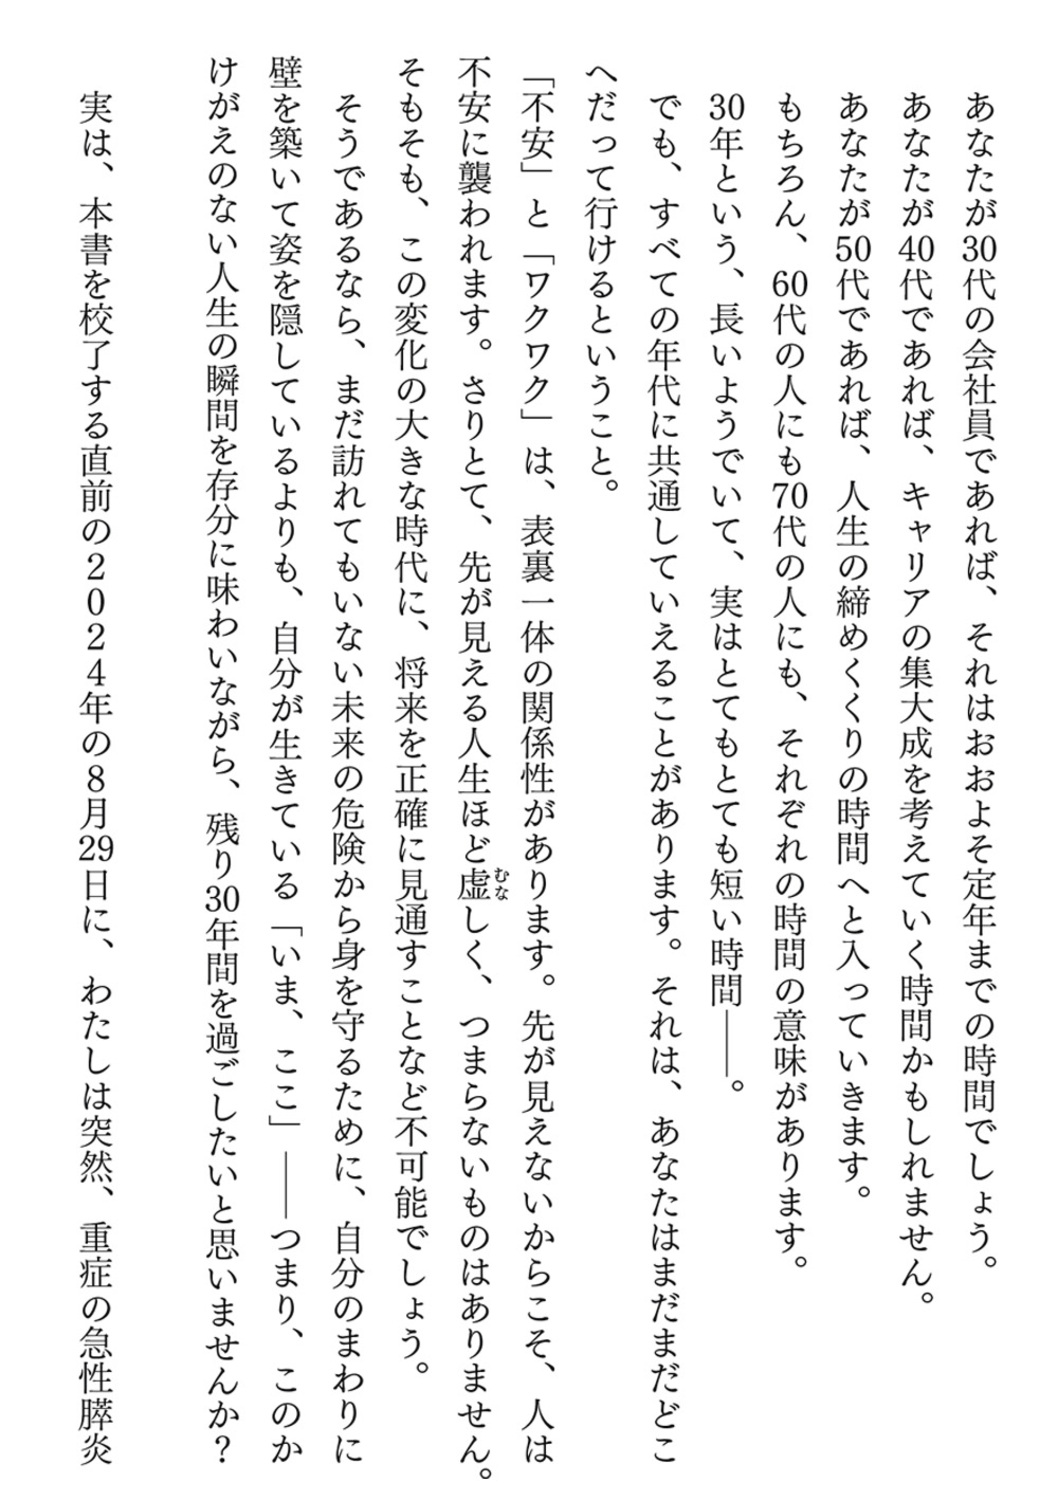 あなたが30代の会社員であれば、それはおおよそ定年までの時間でしょう。
あなたが40代であれば、キャリアの集大成を考えていく時間かもしれません。
あなたが50代であれば、人生の締めくくりの時間へと入っていきます。
もちろん、60代の人にも70代の人にも、それぞれの時間の意味があります。
30年という、長いようでいて、実はとてもとても短い時間——。
でも、すべての年代に共通していえることがあります。それは、あなたはまだまだどこ
へだって行けるということ。
「不安」と「ワクワク」は、表裏一体の関係性があります。先が見えないからこそ、人は
不安に襲われます。さりとて、先が見える人生ほど虚むなしく、つまらないものはありません。
そもそも、この変化の大きな時代に、将来を正確に見通すことなど不可能でしょう。
そうであるなら、まだ訪れてもいない未来の危険から身を守るために、自分のまわりに
壁を築いて姿を隠しているよりも、自分が生きている「いま、ここ」——つまり、このか
けがえのない人生の瞬間を存分に味わいながら、残り30年間を過ごしたいと思いませんか？
実は、本書を校了する直前の2024年の8月29日に、わたしは突然、重症の急性膵炎